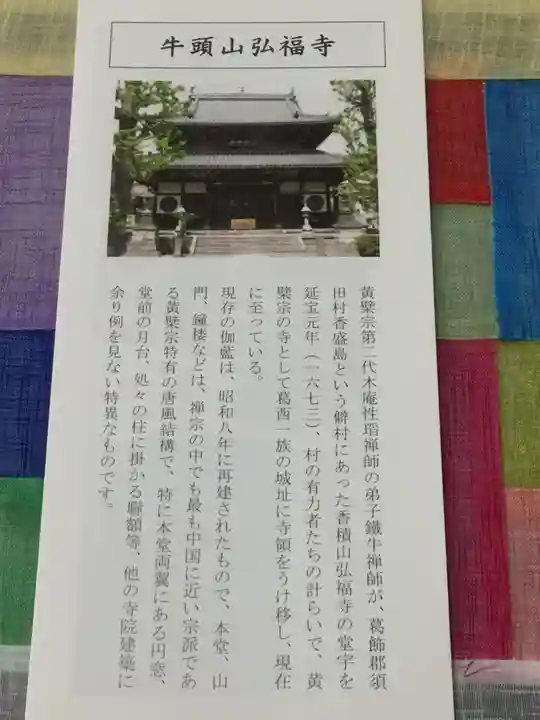 牛頭山弘福寺
黄檗宗第二代木庵性瑫禅師の弟子鐵牛禅師が、葛飾郡須
田村香盛島という僻村にあった香積山弘福寺の堂宇を
延宝元年（一六七三）、村の有力者たちの計らいで、黄
檗宗の寺として葛西一族の城址に寺領をうけ移し、現在
に至っている。
現存の伽藍は、昭和八年に再建されたもので、本堂、山
門、鐘楼などは、禅宗の中でも最も中国に近い宗派であ
る黄檗宗特有の唐風結構で、特に本堂両翼にある円窓、
堂前の月台、処々の柱に掛かる聯額等、他の寺院建築に
余り例を見ない特異なものです。